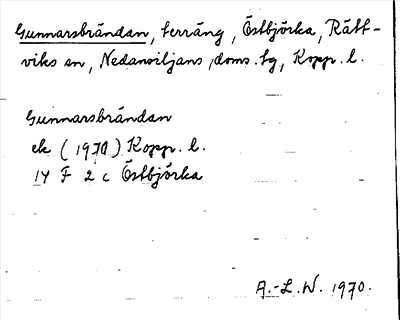 Gunnarsbrändan, terräng, Östbjörka, Rätt-
viks sn, Nedansiljans doms. tg, Kopp. l.
Gunnarsbrändan
ek (1970) Kopp. l.
14 F 2 c Östbjörka
A.-L.W. 1970.